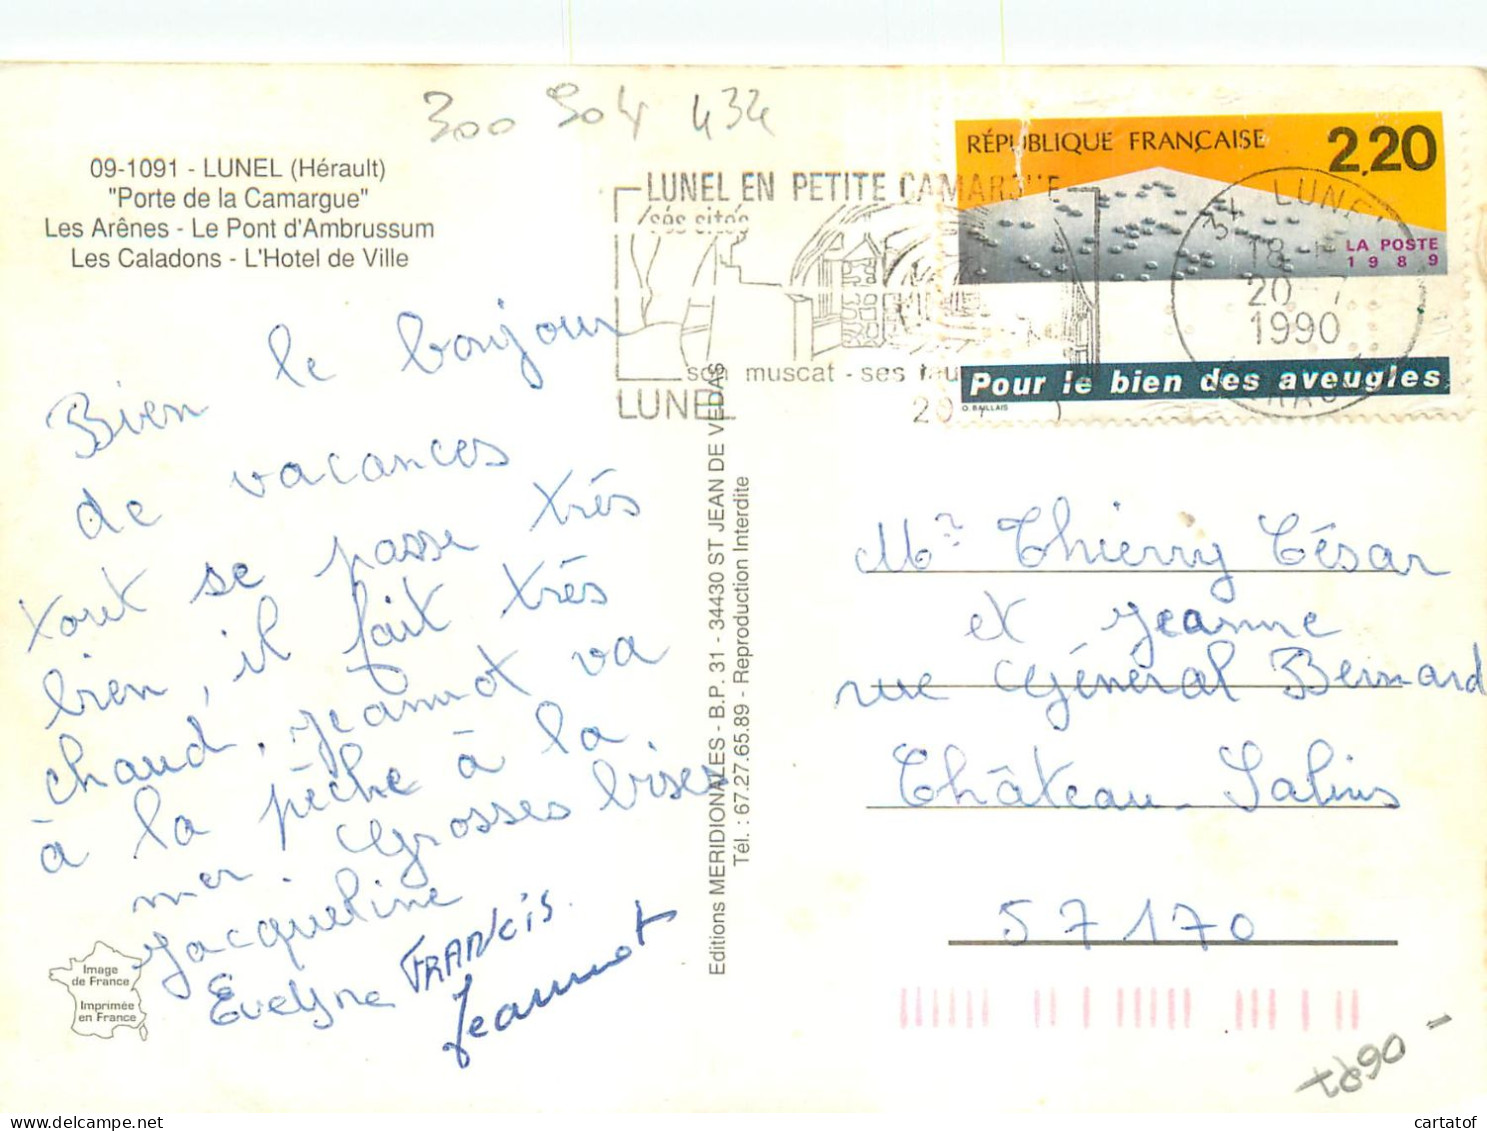 300 904 434
09-1091 - LUNEL (Hérault)
"Porte de la Camargue"
Les Arênes - Le Pont d'Ambrussum
Les Caladons - L'Hotel de Ville
LUNEL EN PETITE CAMARGUE
ses sites
son muscat - ses tau
LUNEL
RÉPUBLIQUE FRANÇAISE
2,20
LA POSTE
1989
Pour le bien des aveugles
O. BAILLAIS
34 LUNEL
18 H
20 - 7
1990
HERAULT
Bien le bonjour
de vacances
tout se passe très
bien, il fait très
chaud, Jeannot va
à la pêche à la
mer. Grosses bises
Jacqueline
Evelyne FRANCIS
Jeannot
Editions MERIDIONALES - B.P. 31 - 34430 ST JEAN DE VEDAS
Tél. : 67.27.65.89 - Reproduction Interdite
Mr Thierry César
et Jeanne
rue Général Bernard
Château-Salins
57170
Image
de France
Imprimée
en France
cartatof